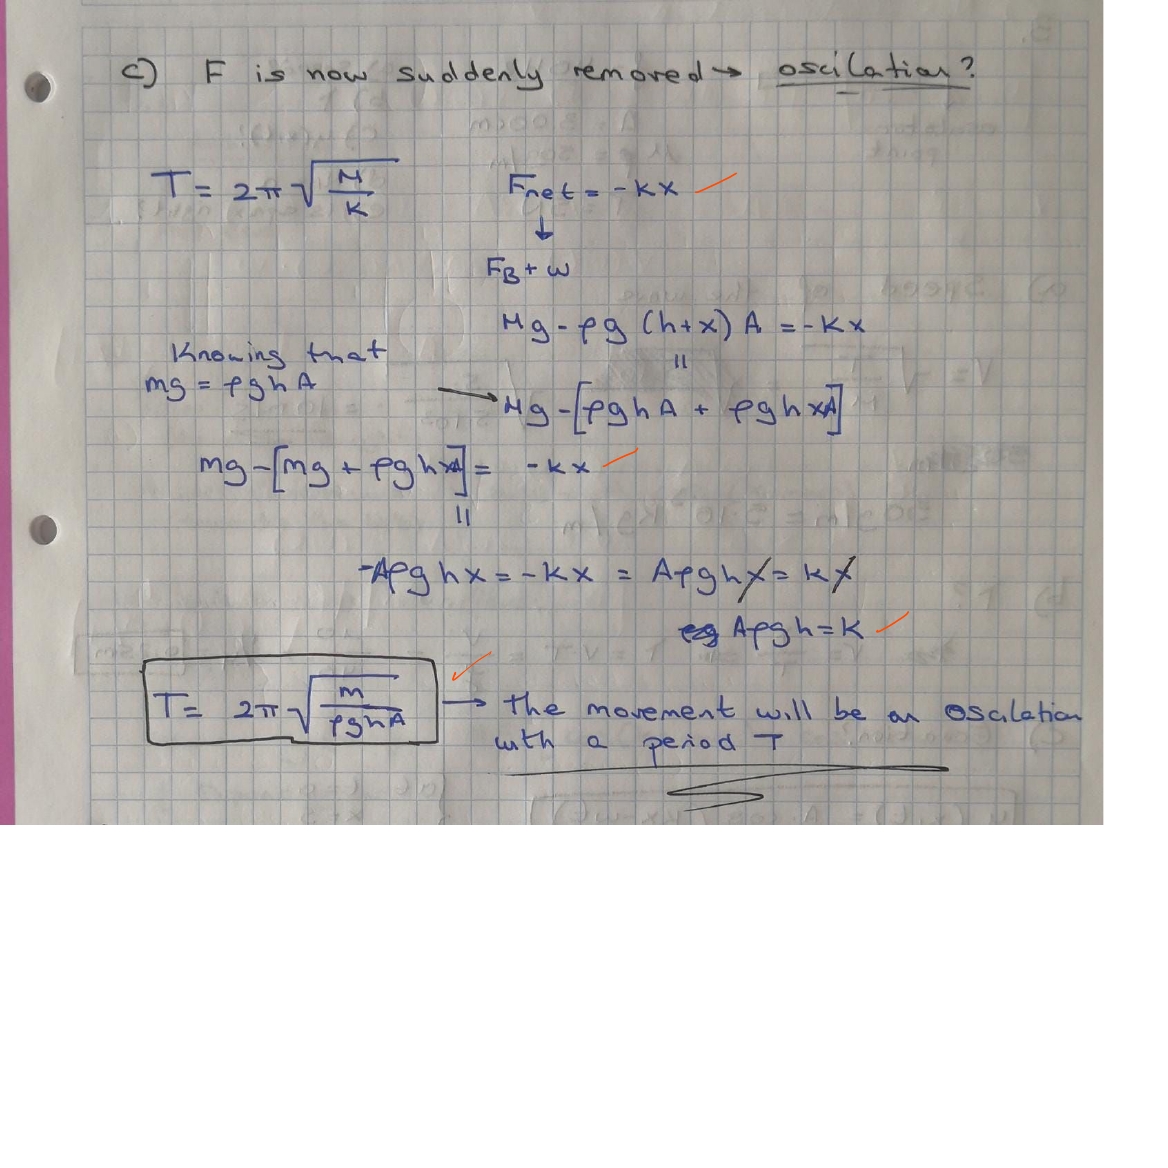 c) F is now suddenly removed → oscilation?
T = 2π √(M/K)
Fnet = -Kx
↓
FB + w
Mg - ρg (h+x) A = -Kx
=
Knowing that
mg = ρghA
→ Mg - [ρghA + ρghxA]
mg - [mg + ρghxA] = -Kx
=
-Aρghx = -Kx = Aρghx = Kx
Aρgh = K
T = 2π √(m/ρghA) → the movement will be an oscilation
with a period T